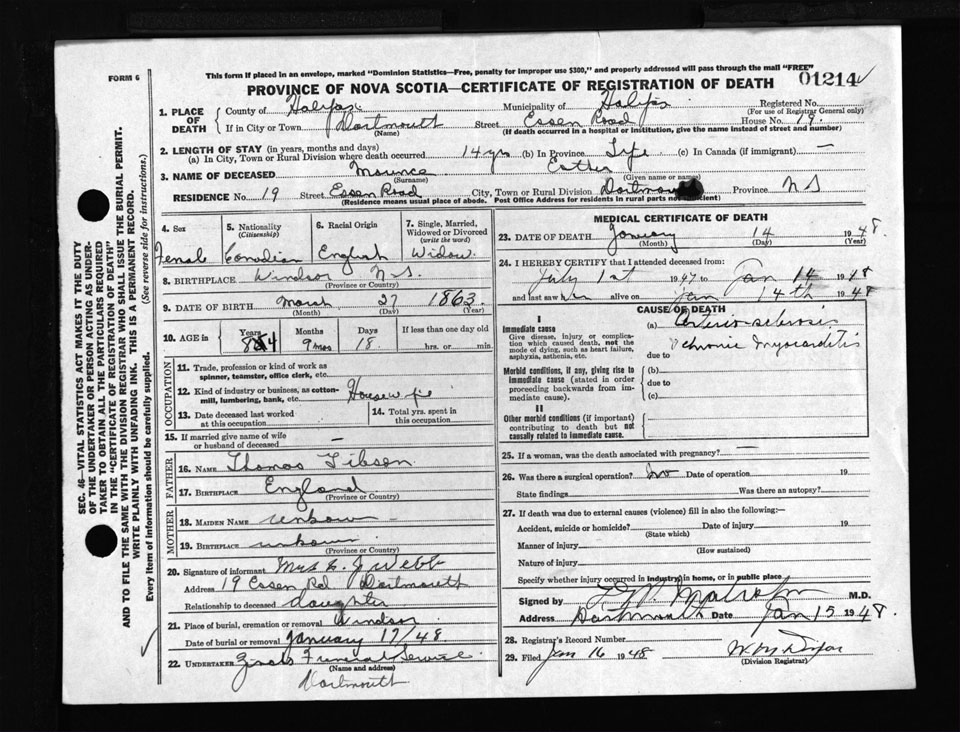 FORM 6
This form if placed in an envelope, marked "Dominion Statistics—Free, penalty for improper use $300," and properly addressed will pass through the mail "FREE"
01214
PROVINCE OF NOVA SCOTIA—CERTIFICATE OF REGISTRATION OF DEATH
1. PLACE OF DEATH County of Halifax Municipality of Halifax Registered No.
(For use of Registrar General only)
If in City or Town Dartmouth (Name) Street Essen Road House No. 19.
(If death occurred in a hospital or institution, give the name instead of street and number)
2. LENGTH OF STAY (in years, months and days)
(a) In City, Town or Rural Division where death occurred 14 yrs (b) In Province Life (c) In Canada (if immigrant) —
3. NAME OF DECEASED (Surname) Esther (Given name or names)
RESIDENCE No. 19 Street Essen Road City, Town or Rural Division Dartmouth Province N S
(Residence means usual place of abode. Post Office Address for residents in rural parts not sufficient)
4. Sex 5. Nationality (Citizenship) 6. Racial Origin 7. Single, Married, Widowed or Divorced (write the word)
Female Canadian English Widow.
8. BIRTHPLACE Windsor N.S.
(Province or Country)
9. DATE OF BIRTH March 27 1863
(Month) (Day) (Year)
10. AGE in Years Months Days If less than one day
84 9 mos 18. hrs. or min.
OCCUPATION
11. Trade, profession or kind of work as spinner, teamster, office clerk, etc.
12. Kind of industry or business, as cotton-mill, lumbering, bank, etc. Housewife
13. Date deceased last worked at this occupation
14. Total yrs. spent in this occupation
15. If married give name of wife or husband of deceased —
FATHER
16. NAME Thomas
17. BIRTHPLACE England
(Province or Country)
MOTHER
18. MAIDEN NAME unknown
19. BIRTHPLACE unknown
(Province or Country)
20. Signature of informant Mrs J Webb
Address 19 Essen Rd Dartmouth
Relationship to deceased daughter
21. Place of burial, cremation or removal Windsor
Date of burial or removal January 17/48.
22. UNDERTAKER Funeral Service
(Name and address)
Dartmouth
MEDICAL CERTIFICATE OF DEATH
23. DATE OF DEATH January 14 1948.
(Month) (Day) (Year)
24. I HEREBY CERTIFY that I attended deceased from:
July 1st 1947 to Jan 14 1948
and last saw her alive on Jan 14th 1948
CAUSE OF DEATH
I
Immediate cause
Give disease, injury or complication which caused death, not the mode of dying, such as heart failure, asphyxia, asthenia, etc.
(a) Arterio-sclerosis
due to chronic myocarditis
Morbid conditions, if any, giving rise to immediate cause (stated in order proceeding backwards from immediate cause).
(b)
due to
(c)
II
Other morbid conditions (if important) contributing to death but not causally related to immediate cause.
25. If a woman, was the death associated with pregnancy? —
26. Was there a surgical operation? No Date of operation 19
State findings Was there an autopsy?
27. If death was due to external causes (violence) fill in also the following:—
Accident, suicide or homicide? Date of injury 19
(State which)
Manner of injury
(How sustained)
Nature of injury
Specify whether injury occurred in industry, in home, or in public place
Signed by M.D.
Address Dartmouth Date Jan 15 1948.
28. Registrar's Record Number
29. Filed Jan 16 1948
(Division Registrar)
SEC. 46—VITAL STATISTICS ACT MAKES IT THE DUTY
OF THE UNDERTAKER OR PERSON ACTING AS UNDER-
TAKER TO OBTAIN ALL THE PARTICULARS REQUIRED
IN THE "CERTIFICATE OF REGISTRATION OF DEATH"
AND TO FILE THE SAME WITH THE DIVISION REGISTRAR WHO SHALL ISSUE THE BURIAL PERMIT.
WRITE PLAINLY WITH UNFADING INK. THIS IS A PERMANENT RECORD.
Every item of information should be carefully supplied. (See reverse side for instructions.)